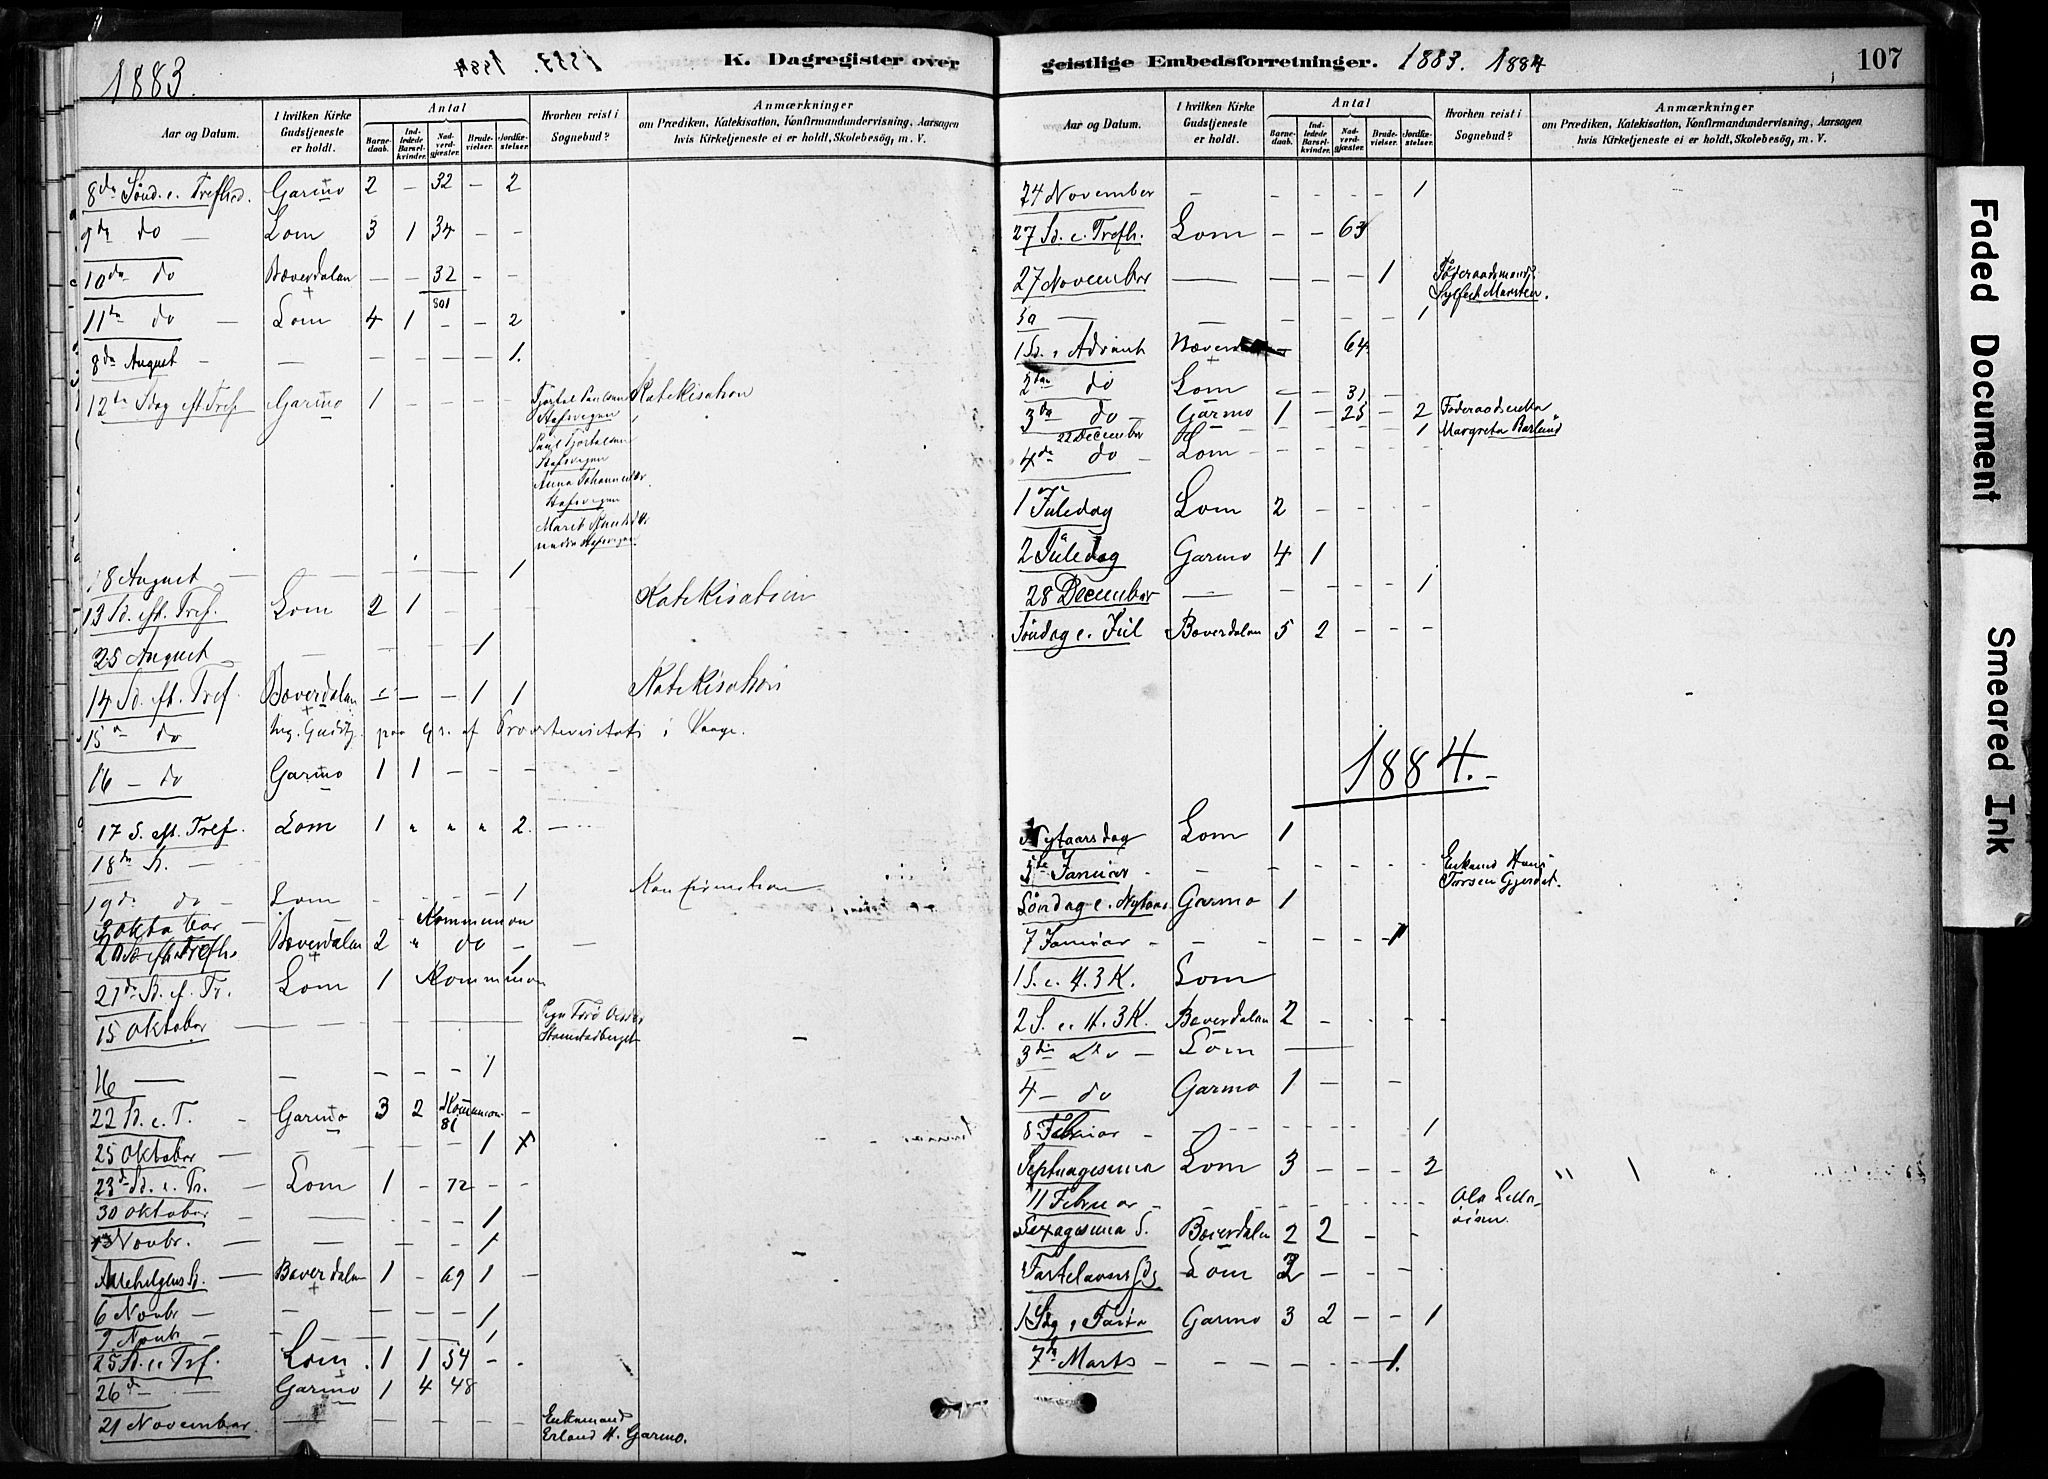 K. Dagregister over
geistlige Embedsforretninger. 1883. 1884
107
1883.
Aar og Datum. | I hvilken Kirke Gudstjeneste er holdt. | Antal | Barne-daab. | Ind-ledede Barsel-kvinder. | Nad-verd-gjæster. | Brude-vielser. | Jordfæ-stelser. | Hvorhen reist i Sognebud? | Anmærkninger om Prædiken, Katekisation, Konfirmandundervisning, Aarsagen hvis Kirketjeneste ei er holdt, Skolebesög, m. V.
8de Sönd. e. Trefhed. Garmo 2 – 32 – 2
9de do – Lom 3 1 34 – –
10de do Bæverdalen – – 32 –
501
11te do – Lom 4 1 – – 2
8de August – – – – – – 1.
12te Sdag eft Tref Garmo 1 – – – Katekisation
18 August – – – 1
13 S. eft. Tref. Lom 2 1 – – – Katekisation
25 August – – 1
14 S. eft. Tref. Bæverdalen – – – 1 1 Katekisation
15 – do Ing. Gudstj. paa Gr. af Provstevisitats i Vaage.
16 – do Garmo 1 1 – – –
17 S. eft. Tref. Lom 1 " " " 2. –
18de S. –
19de do – Lom – – – – 1 Konfirmation
Oktober Kommunion
20 S. eft Trefh. Bæverdalen 2 " do – –
21de S. ef. Tr. Lom 1 Kommunion
15 Oktober
16 – – – – – – 1
22 S. e. T. – Garmo 3 2 Kommunion –
81
25 Oktober – – – – 1
23d S. e. Tr. Lom 1 – 72 – –
30 Oktober – – – – 1
Novbr. – – – – – 1
Allehelgens S. – Bæverdalen 1 – 69 1 –
6 Novbr – – – – – 1
9 Novbr – – – – – 1
25 S. e. Trf. Lom . 1 1 54 – .
26 d – Garmo 1 4 48
21 November – – – – – – Enkemand
Erland H. Garmo.
Aar og Datum. | I hvilken Kirke Gudstjeneste er holdt. | Antal | Barne-daab. | Ind-ledede Barsel-kvinder. | Nad-verd-gjæster. | Brude-vielser. | Jordfæ-stelser. | Hvorhen reist i Sognebud? | Anmærkninger om Prædiken, Katekisation, Konfirmandundervisning, Aarsagen hvis Kirketjeneste ei er holdt, Skolebesög, m. V.
24 November – – – – – 1
27 S. e. Trefh. Lom – – 63
27 November – – – – 1
– – – – – – 1
1 S. i Advent 64
2den do Lom – – 31 – –
3de do – Garmo 1 – 25 – 2 Föderaadsenke
22 December – – – – – 1 Margreta
4de do – Lom – – – – –
1 Juledag Lom 2 – – – –
2 Juledag Garmo 4 1
28 December – – – – – 1
Söndag e. Jul Bæverdalen 5 2 – – –
1884.
Nytaarsdag Lom 1
Januar – – – – – – Enkemd Hans
Söndag e. Nytaar Garmo 1
7 Januar – – – – – 1
1 S. e. H. 3 K. Lom
2 S. e. H. 3 K. Bæverdalen 2 – – – –
3die do – Lom –
4 – do Garmo 1 – –
8 Februar – – – – – 1
Septuagesima Lom 3 – – – 2
11 Februar – – – – – – Ola
Sexagesima S. Bæverdalen 2 2 – –
Fastelavns Sdg Lom – – –
1 Sdg i Faste Garmo 3 2 – – 1
7de Marts – – – – – 1.
Faded Document
Smeared Ink